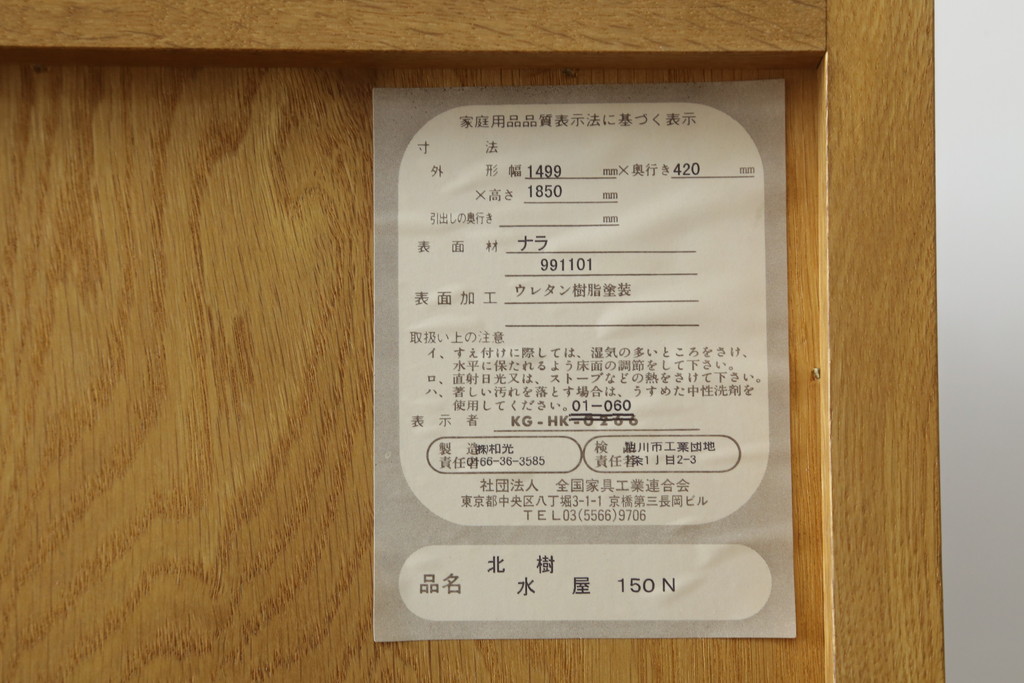 家庭用品品質表示法に基づく表示
寸法
外形 幅 1499 mm×奥行き 420 mm
×高さ 1850 mm
引出しの奥行き mm
表面材 ナラ
991101
表面加工 ウレタン樹脂塗装
取扱い上の注意
イ、すえ付けに際しては、湿気の多いところをさけ、
水平に保たれるよう床面の調節をして下さい。
ロ、直射日光又は、ストーブなどの熱をさけて下さい。
ハ、著しい汚れを落とす場合は、うすめた中性洗剤を
使用してください。 01-060
表示者 KG-HK-0266
製造 ㈱和光
責任者 0166-36-3585
検品 旭川市工業団地
責任者 1条1丁目2-3
社団法人 全国家具工業連合会
東京都中央区八丁堀3-1-1 京橋第三長岡ビル
TEL03(5566)9706
品名 北樹
水屋 150N